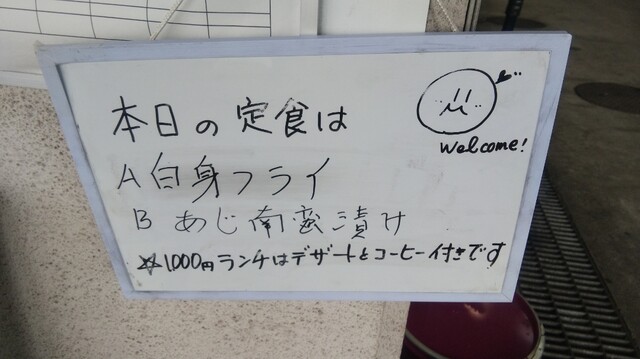 本日の定食は
Welcome!
A白身フライ
B あじ南蛮漬け
☆1,000円ランチはデザートとコーヒー付きです